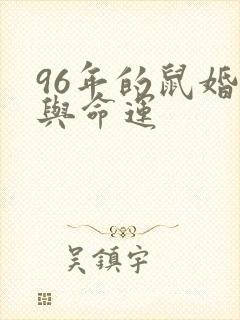 96年的鼠婚
與命運
吳鎮宇